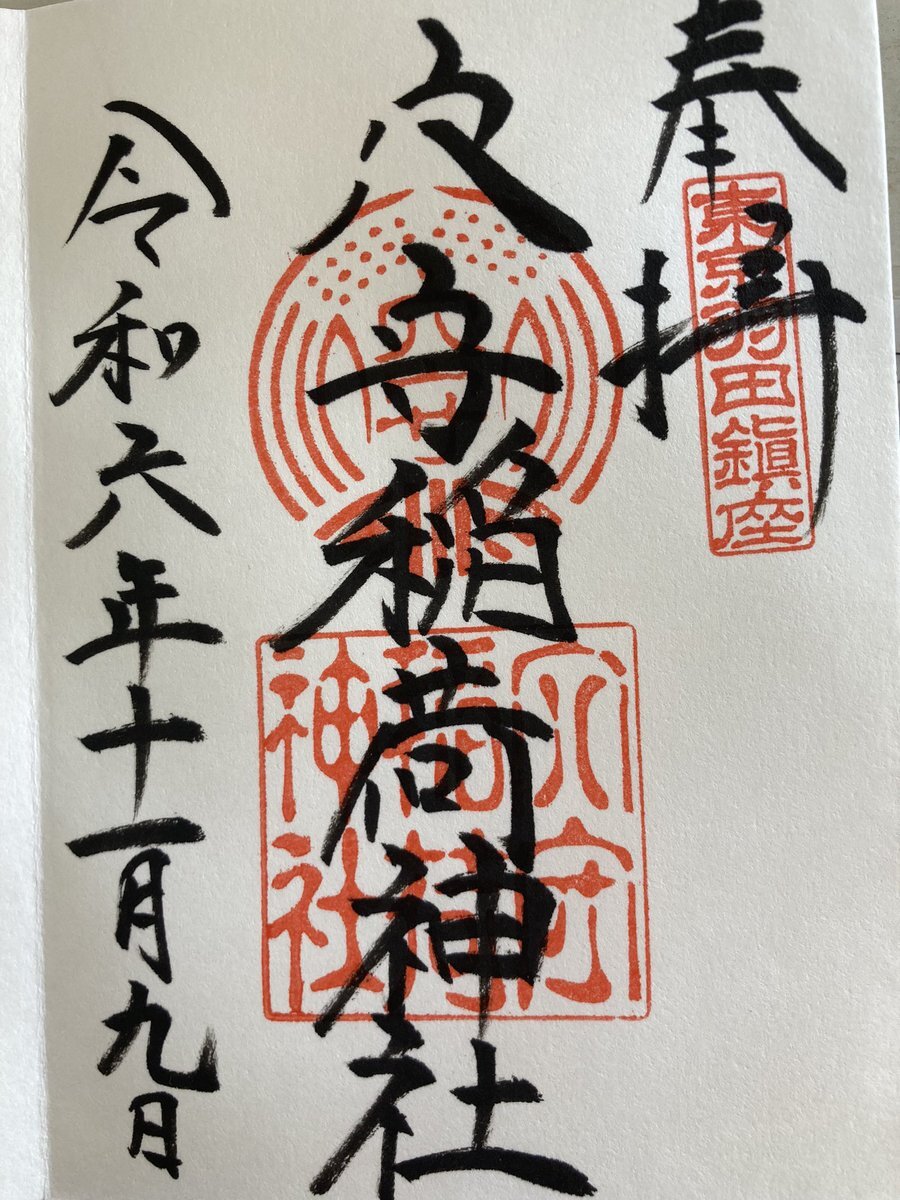 奉拝
東京羽田鎮座
穴守稲荷神社
穴守稲荷神社
令和六年十一月九日